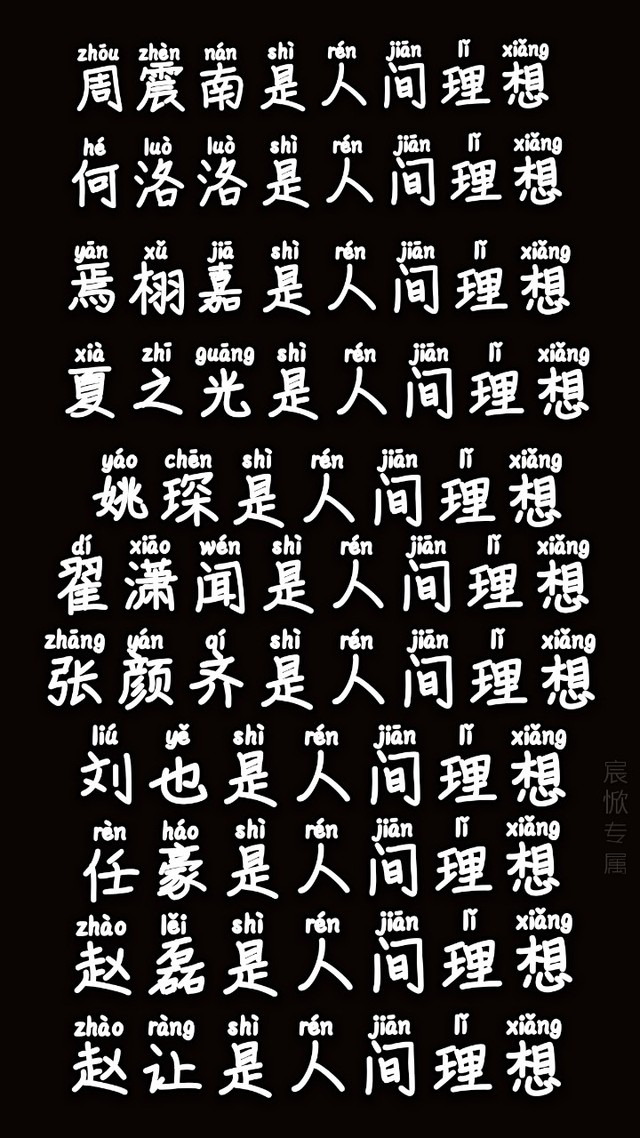 zhōu zhèn nán shì rén jiān lǐ xiǎng
周震南是人间理想
hé luò luò shì rén jiān lǐ xiǎng
何洛洛是人间理想
yān xǔ jiā shì rén jiān lǐ xiǎng
焉栩嘉是人间理想
xià zhī guāng shì rén jiān lǐ xiǎng
夏之光是人间理想
yáo chēn shì rén jiān lǐ xiǎng
姚琛是人间理想
dí xiāo wén shì rén jiān lǐ xiǎng
翟潇闻是人间理想
zhāng yán qí shì rén jiān lǐ xiǎng
张颜齐是人间理想
liú yě shì rén jiān lǐ xiǎng
刘也是人间理想
rèn háo shì rén jiān lǐ xiǎng
任豪是人间理想
zhào lěi shì rén jiān lǐ xiǎng
赵磊是人间理想
zhào ràng shì rén jiān lǐ xiǎng
赵让是人间理想
宸惞专属